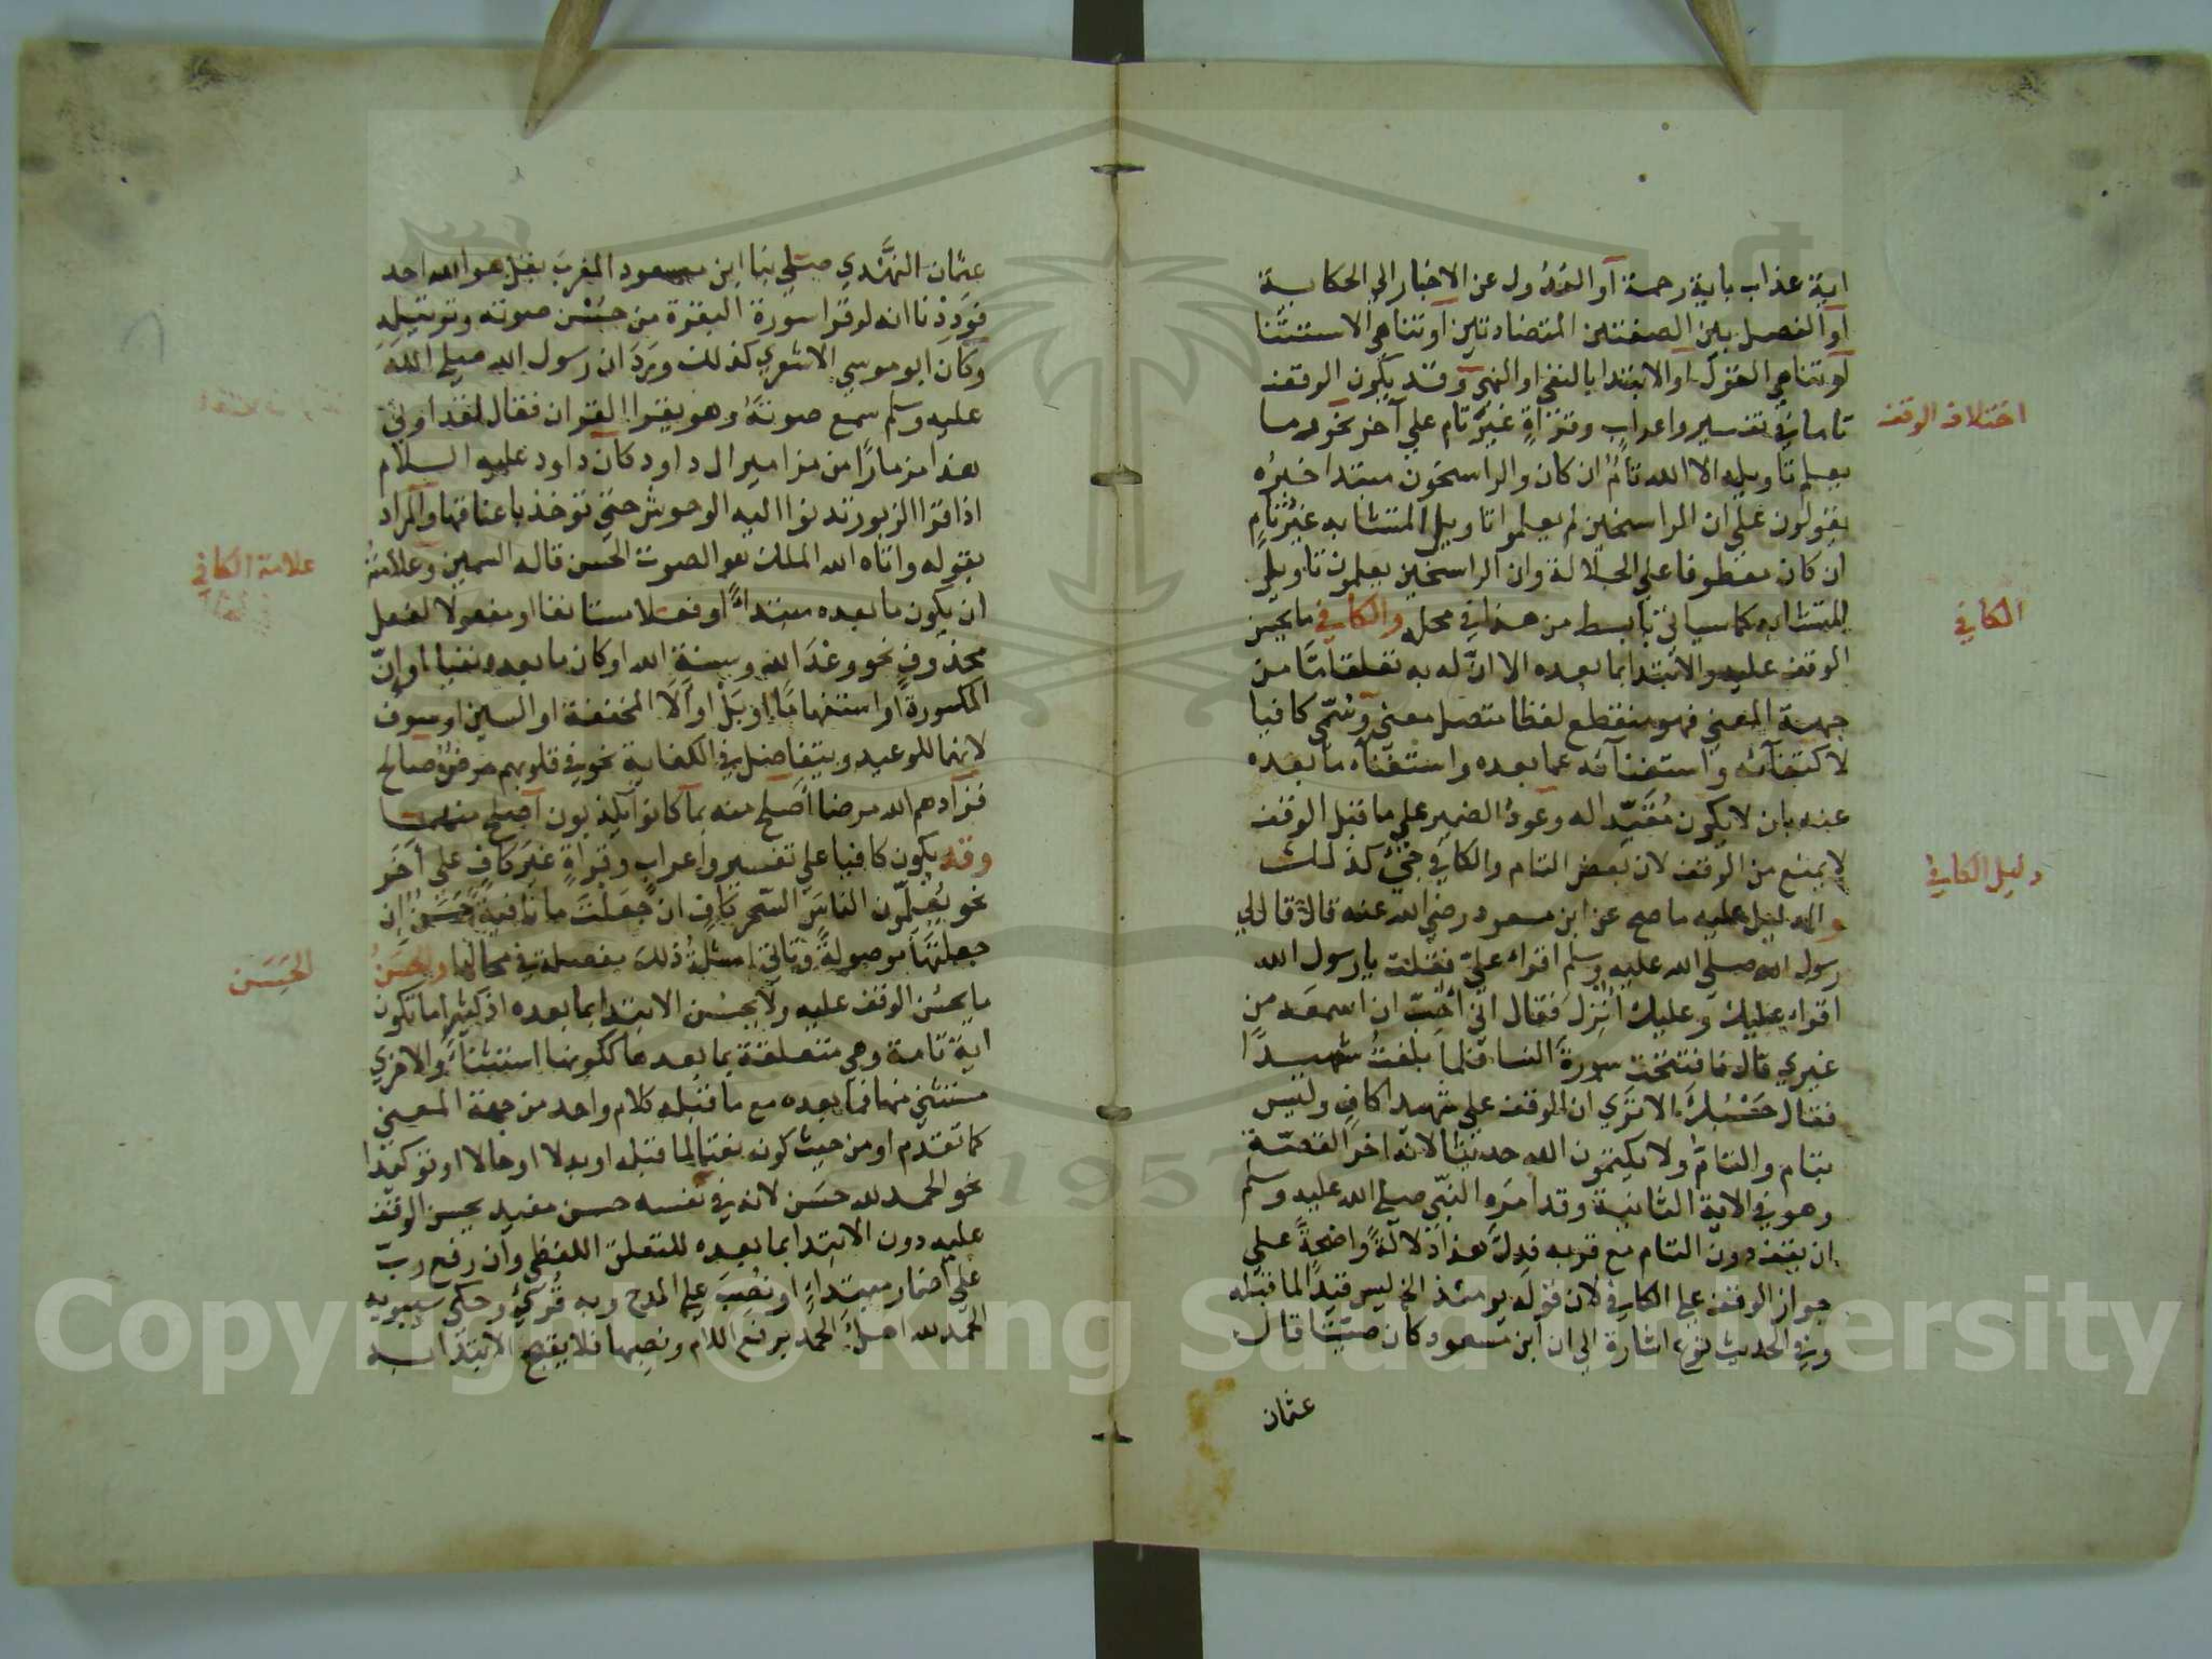 اية عذاب باية رحمة أو العدول عن الاخبار الى الحكاية
أو الفصل بين الصفتين المتضادتين او تناهى الاستثنا
او تناهى القول او الابتدا بالنفى او النهى وقد يكون الوقف
تاما في تفسير واعراب وقراةٍ غيرُ تام على آخر نحو وما
يعلم تاويله الا الله تامٌ ان كان والراسخون مبتدا خبرُه
يقولون على ان الراسخين لم يعلموا تاويل المتشابه غيرُ تامٍ
ان كان معطوفا على الجلالة وان الراسخين يعلمون تاويل
المتشابه كما سياتي بابسط من هذا في محله والكافي ما يحسن
الوقف عليه والابتدا بما بعده الا انّ له به تعلقا مّا من
جهة المعنى فهو منقطع لفظا متصل معنى وسُمّى كافيا
لاكتفآئه واستغنآئه عما بعده واستغنآء ما بعده
عنه بان لا يكون مُقَيّدا له وعودُ الضمير على ما قبل الوقف
لا يمنع من الوقف لان بعض التام والكافي جنس كذلك
والدليل عليه ما صح عن ابن مسعود رضى الله عنه قال قال لى
رسول الله صلى الله عليه وسلم اقراء علىّ فقلت يا رسول الله
اقراء عليك وعليك اُنزل فقال انّى اُحبّ ان اسمعه من
غيرى قال فافتتحت سورة النسا فلما بلغتُ شهيدًا
فقال حَسْبُك الا ترى ان الوقف على شهيدا كافٍ وليس
بتام والتامّ ولا يكتمون الله حديثا لانه اخر القصّة
وهو في الاية الثانية وقد امَره النبّى صلى الله عليه وسلم
ان يقف دون التام مع قربه فدلّ هذا دلالةً واضحةً على
جواز الوقف على الكافي لان قوله يومئذ الخ ليس قيداً لما قبله
وفي الحديث نوع اشارة الى ان ابن مسعود كان صيّتا قال
عثمان
اختلاف الوقف
الكافي
دليل الكافي
عثمان النهّدي صلى بنا ابن مسعود المغرب بقل هو الله احد
فوَدِدْنا انه لو قرا سورة البقرة من حُسْن صوته وترتيله
وكان ابو موسى الاشعرى كذلك ورَدَ ان رسول الله صلى الله
عليه وسلم سمع صوتهُ وهو يقرا القران فقال لقد اوتى
هذا مزمارًا من مزامير ال داود كان داود عليه السلام
اذا قرا الزبور تدنوا اليه الوحوش حتى تؤخذ باعناقها والمراد
بقوله واتاه الله الملك هو الصوت الحسن قاله السمين وعلامتُه
ان يكون ما بعده مبتداءً او فعلا مستانفا او مفعولا لفعل
محذوفٍ نحو وعْدَ الله وسنةَ الله او كان ما بعده نفيا او إنّ
المكسورة او استفهامًا او بَلْ او أَلَا المخففة او السين او سوف
لانها للوعيد ويتفاضل في الكفاية نحو في قلوبهم مرضٌ صالح
فزادهم الله مرضا اَصلح منه بما كانوا يكذبون اصلح منهما
وقد يكون كافيا على تفسير واعراب وقراةٍ غيرَ كافٍ على آخر
نحو يُعلّمون الناس السّحر كافٍ ان جعلتَ ما نافيةً حَسَنٌ ان
جعلتها موصولةً وتاتى امثلة ذلك مفصلة في محالها والحسنُ
ما يحسُن الوقف عليه ولا يحسُن الابتدا بما بعده اذ كثيرا ما تكون
اية تامة وهي متعلقة بما بعدها ككونها استثناءً والاخرى
مستثنى منها فما بعده مع ما قبله كلام واحد من جهة المعنى
كما تقدّم او من حيث كونه نعتا لما قبله او بدلا او حالا او توكيدا
نحو الحمد لله حسَن لانه في نفسه حسن مفيد يحسن الوقف
عليه دون الابتدا بما بعده للتعلق اللفظى وان رفع ربّ
على اضمار مبتداءٍ او نُصبَ على المدح وبه قُرئ وحكى سيبويه
الحمد لله اهلُ الحمد برفع اللام ونصبها فلا يقبح الابتدا به
علامة الكافي
الحَسَن